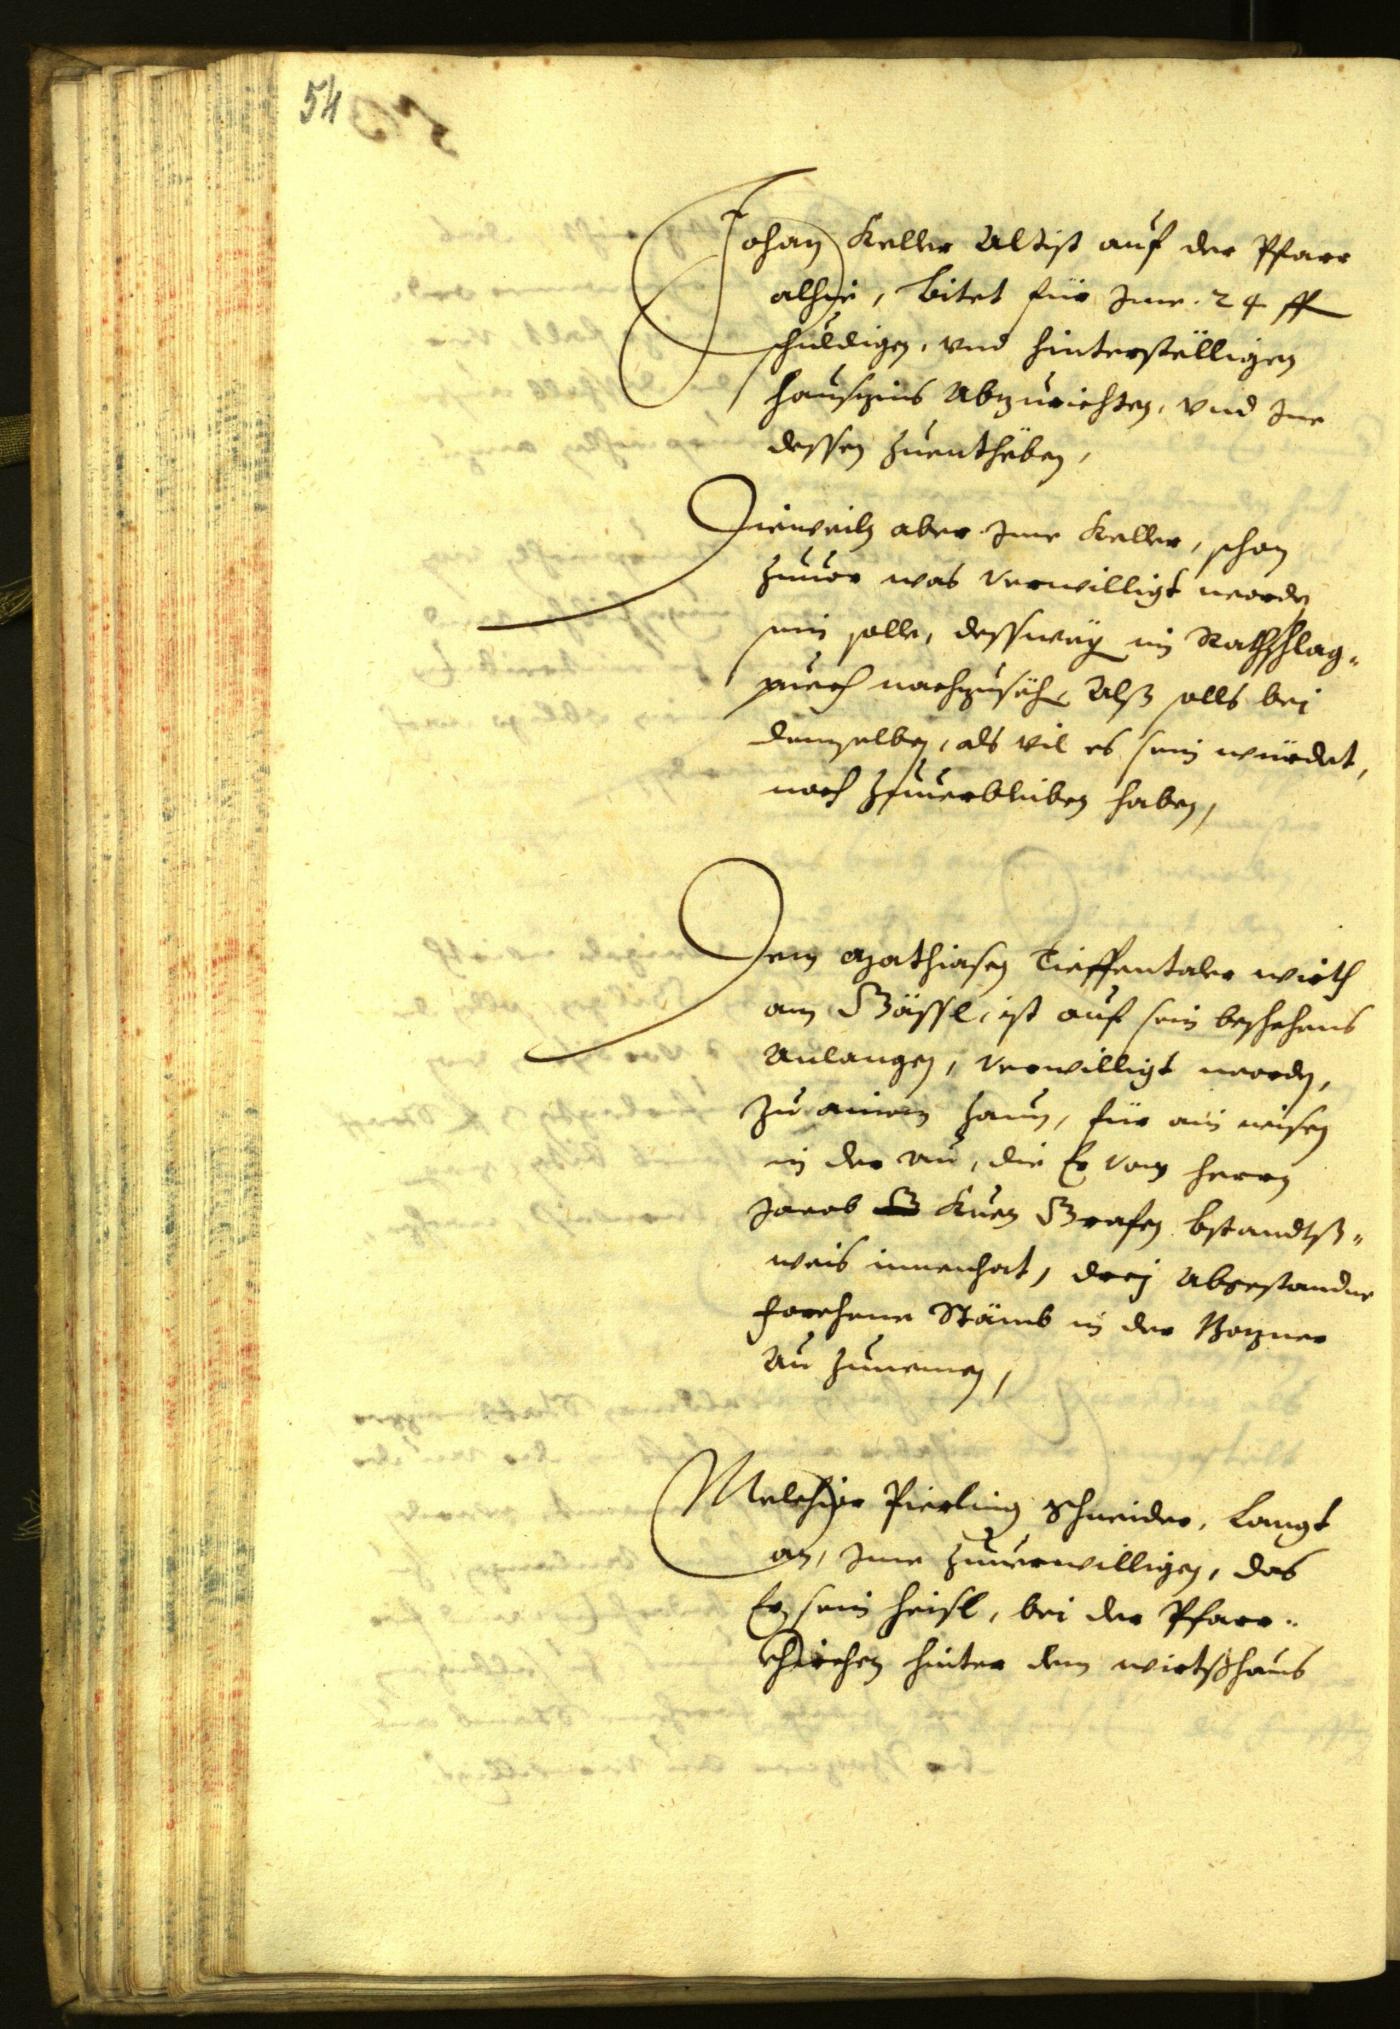 54
Johan Keller Altist auf der Pfarr
alhie, bitet für Jme 24 fl
schuldigen, vnd hinterstelligen
hauszins Abzurichten, vnd Jne
dessen zuenthöben,
Dieweiln aber Jme Keller, schon
zuuor was verwilligt worden
sein solle, dessweg im Rathschlag-
puech nachzusöhen Alß solls bei
demselben, als vil es sein würdet,
noch zuuerbleiben haben,
Dem Mathiasen Tieffentaler wirth
am Gässl, ist auf sein beschehens
Anlangen, verwilligt worden,
zu ainem zaun, für ain wisen
in der au, die Er von herrn
Jacob Kuen Grafen bstandtß-
weis innenhat, drej Abgestandne
forchene Stämb in der Bozner
Au zunemen,
Melchior Pierling Schneider, langt
an, Jme zuuerwilligen, das
Er sein heisl, bei der Pfarr-
khirchen hinter dem wirtßhaus